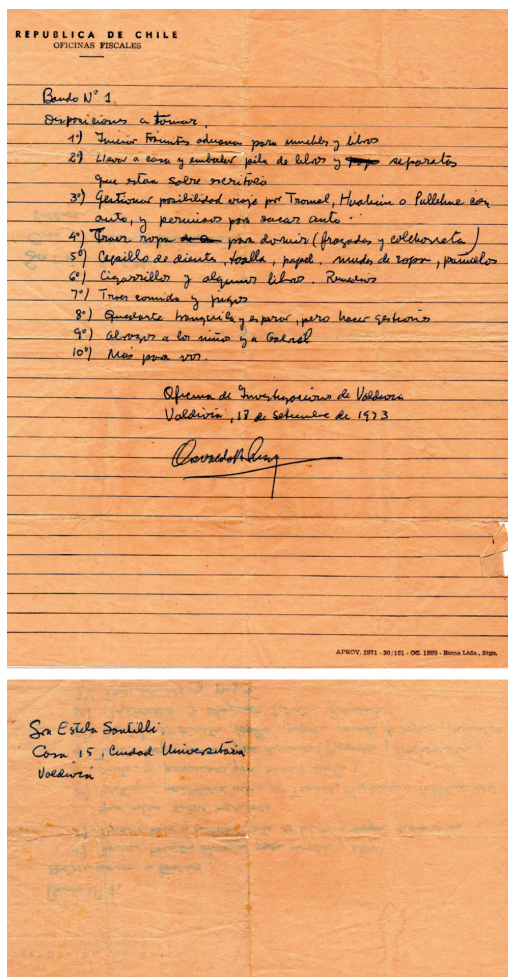 REPUBLICA DE CHILE
OFICINAS FISCALES
Bando N° 1
Disposiciones a tomar,
1°) Iniciar trámites aduana para muebles y libros
2°) Llevar a casa y embalar pila de libros y separatas
que estan sobre escritorio
3°) Gestionar posibilidad viaje por Tromal, Huahum o Pullehue con
auto, y permisos para sacar auto.
4°) Traer ropa para dormir (frazadas y colchoneta)
5°) Cepillo de dientes, toalla, papel, mudas de ropa, pañuelos
6°) Cigarrillos y algunos libros. Remedios
7°) Traer comida y jugos
8°) Quedarte tranquila y esperar, pero hacer gestiones
9°) Abrazos a los niños y a
10°) Más para vos.
Oficina de Investigaciones de Valdivia
Valdivia, 18 de setiembre de 1973
APROV. 1971 - 20/151 - OC. 1580 - Roma Ltda., Stgo.
Sra Estela Santilli
Casa 15, Ciudad Universitaria
Valdivia